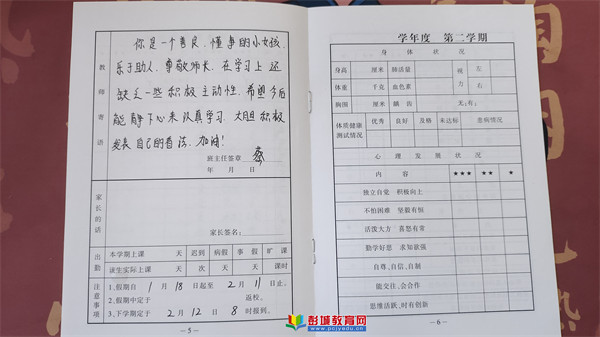 教师寄语
你是一个善良、懂事的小女孩,
乐于助人,尊敬师长,在学习上还
缺乏一些积极主动性,希望今后
能静下心来认真学习,大胆积极
发表自己的看法,加油!
班主任签章 蔡
年 月 日
家长的话
家长签名:
出勤
本学期上课 天 迟到 病假 事假 旷课
该生实际上课 天 次 天 天 课时
注意事项
1.假期自 1 月 18 日起至 2 月 11 日止。
2.假期中定于 返校。
3.下学期定于 2 月 12 日 8 时报到。
— 5 —
学年度 第二学期
身体状况
身高 厘米 肺活量 视力 左
体重 千克 血色素 右
胸围 厘米 龋齿 无;有:
体质健康测试情况 优秀 良好 及格 未达标 患病情况
心理发展状况
内容 ★★★ ★★ ★
独立自觉 积极向上
不怕困难 坚毅有恒
活泼大方 喜怒有常
勤学好思 求知欲强
自尊、自信、自制
能交往、会合作
思维活跃、时有创新
— 6 —
彭城教育网
www.pcjyedu.cn